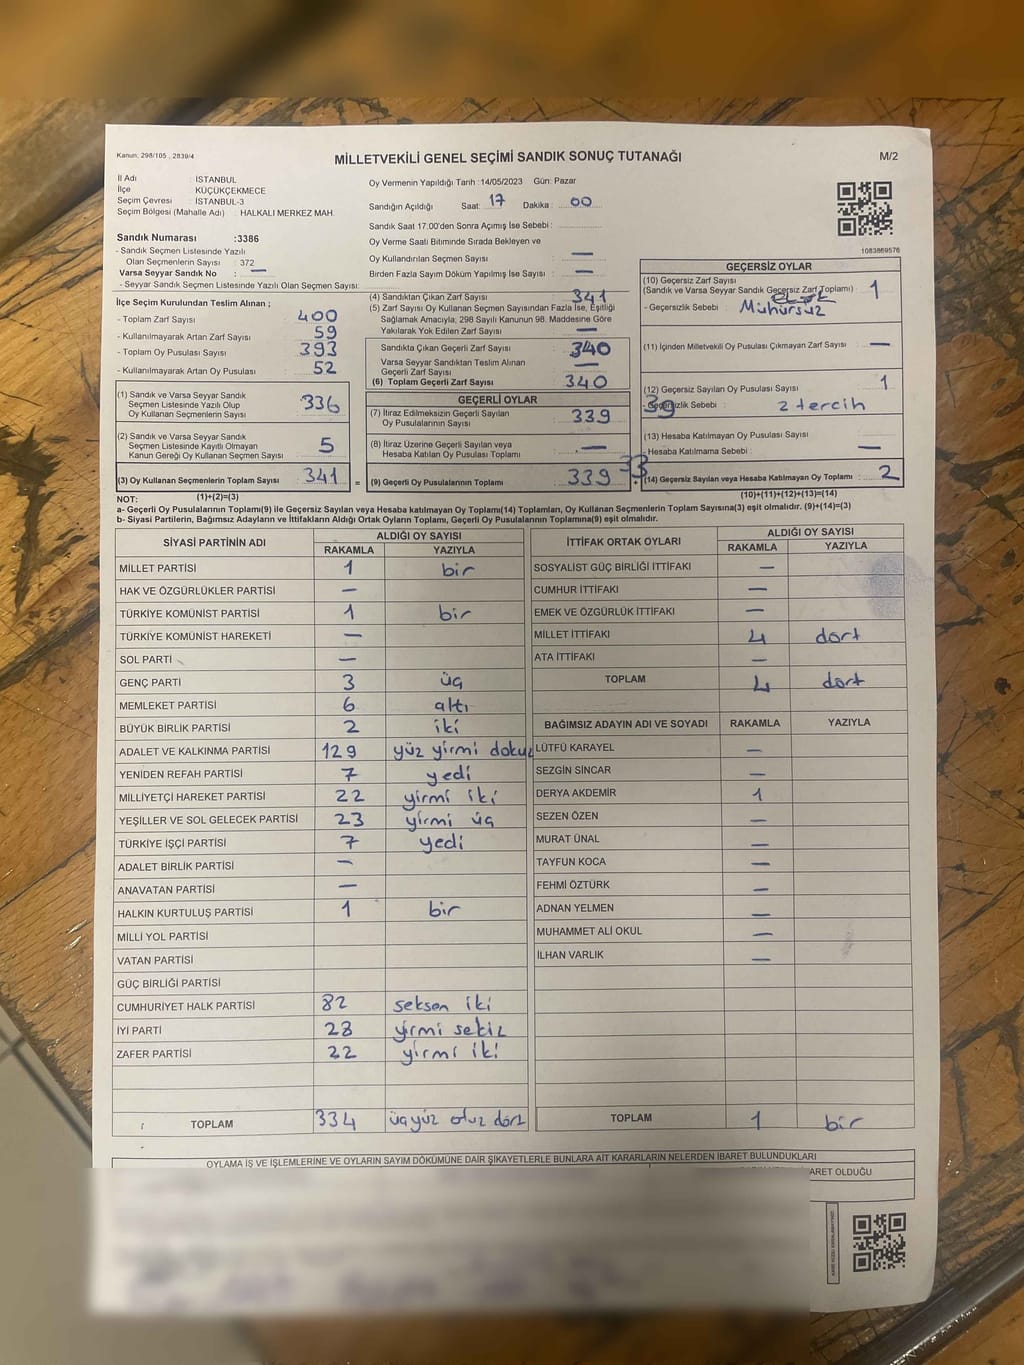 Kanun: 298/105 , 2839/4
MİLLETVEKİLİ GENEL SEÇİMİ SANDIK SONUÇ TUTANAĞI
M/2
İl Adı : İSTANBUL
İlçe : KÜÇÜKÇEKMECE
Seçim Çevresi : İSTANBUL-3
Seçim Bölgesi (Mahalle Adı) : HALKALI MERKEZ MAH.
Oy Vermenin Yapıldığı Tarih :14/05/2023 Gün: Pazar
Sandığın Açıldığı Saat: 17 Dakika : 00
Sandık Saat 17:00'den Sonra Açımış İse Sebebi :
Oy Verme Saati Bitiminde Sırada Bekleyen ve
Oy Kullandırılan Seçmen Sayısı : —
Birden Fazla Sayım Döküm Yapılmış İse Sayısı : —
1083869576
Sandık Numarası :3386
- Sandık Seçmen Listesinde Yazılı
Olan Seçmenlerin Sayısı : 372
Varsa Seyyar Sandık No : —
- Seyyar Sandık Seçmen Listesinde Yazılı Olan Seçmen Sayısı:
İlçe Seçim Kurulundan Teslim Alınan ;
- Toplam Zarf Sayısı : 400
- Kullanılmayarak Artan Zarf Sayısı : 59
- Toplam Oy Pusulası Sayısı : 393
- Kullanılmayarak Artan Oy Pusulası : 52
(1) Sandık ve Varsa Seyyar Sandık
Seçmen Listesinde Yazılı Olup
Oy Kullanan Seçmenlerin Sayısı : 336
(2) Sandık ve Varsa Seyyar Sandık
Seçmen Listesinde Kayıtlı Olmayan
Kanun Gereği Oy Kullanan Seçmen Sayısı : 5
(3) Oy Kullanan Seçmenlerin Toplam Sayısı : 341 =
(4) Sandıktan Çıkan Zarf Sayısı : 341
(5) Zarf Sayısı Oy Kullanan Seçmen Sayısından Fazla İse, Eşitliği
Sağlamak Amacıyla, 298 Sayılı Kanunun 98. Maddesine Göre
Yakılarak Yok Edilen Zarf Sayısı : —
Sandıkta Çıkan Geçerli Zarf Sayısı : 340
Varsa Seyyar Sandıktan Teslim Alınan
Geçerli Zarf Sayısı : —
(6) Toplam Geçerli Zarf Sayısı : 340
GEÇERLİ OYLAR
(7) İtiraz Edilmeksizin Geçerli Sayılan
Oy Pusulalarının Sayısı : 339
(8) İtiraz Üzerine Geçerli Sayılan veya
Hesaba Katılan Oy Pusulası Toplamı : —
(9) Geçerli Oy Pusulalarının Toplamı : 339
GEÇERSİZ OYLAR
(10) Geçersiz Zarf Sayısı
(Sandık ve Varsa Seyyar Sandık Geçersiz Zarf Toplamı) : 1
- Geçersizlik Sebebi : Mühürsüz
(11) İçinden Milletvekili Oy Pusulası Çıkmayan Zarf Sayısı : —
(12) Geçersiz Sayılan Oy Pusulası Sayısı : 1
- Geçersizlik Sebebi : 2 tercih
(13) Hesaba Katılmayan Oy Pusulası Sayısı :
- Hesaba Katılmama Sebebi : —
(14) Geçersiz Sayılan veya Hesaba Katılmayan Oy Toplamı : 2
NOT: (1)+(2)=(3) (10)+(11)+(12)+(13)=(14)
a- Geçerli Oy Pusulalarının Toplamı(9) ile Geçersiz Sayılan veya Hesaba katılmayan Oy Toplamı(14) Toplamları, Oy Kullanan Seçmenlerin Toplam Sayısına(3) eşit olmalıdır. (9)+(14)=(3)
b- Siyasi Partilerin, Bağımsız Adayların ve İttifakların Aldığı Ortak Oyların Toplamı, Geçerli Oy Pusulalarının Toplamına(9) eşit olmalıdır.
SİYASİ PARTİNİN ADI ALDIĞI OY SAYISI
RAKAMLA YAZIYLA
MİLLET PARTİSİ 1 bir
HAK VE ÖZGÜRLÜKLER PARTİSİ —
TÜRKİYE KOMÜNİST PARTİSİ 1 bir
TÜRKİYE KOMÜNİST HAREKETİ —
SOL PARTİ —
GENÇ PARTİ 3 üç
MEMLEKET PARTİSİ 6 altı
BÜYÜK BİRLİK PARTİSİ 2 iki
ADALET VE KALKINMA PARTİSİ 129 yüz yirmi dokuz
YENİDEN REFAH PARTİSİ 7 yedi
MİLLİYETÇİ HAREKET PARTİSİ 22 yirmi iki
YEŞİLLER VE SOL GELECEK PARTİSİ 23 yirmi üç
TÜRKİYE İŞÇİ PARTİSİ 7 yedi
ADALET BİRLİK PARTİSİ —
ANAVATAN PARTİSİ —
HALKIN KURTULUŞ PARTİSİ 1 bir
MİLLİ YOL PARTİSİ
VATAN PARTİSİ
GÜÇ BİRLİĞİ PARTİSİ
CUMHURİYET HALK PARTİSİ 82 seksen iki
İYİ PARTİ 28 yirmi sekiz
ZAFER PARTİSİ 22 yirmi iki
TOPLAM 334 üçyüz otuz dört
İTTİFAK ORTAK OYLARI ALDIĞI OY SAYISI
RAKAMLA YAZIYLA
SOSYALİST GÜÇ BİRLİĞİ İTTİFAKI —
CUMHUR İTTİFAKI —
EMEK VE ÖZGÜRLÜK İTTİFAKI —
MİLLET İTTİFAKI 4 dört
ATA İTTİFAKI —
TOPLAM 4 dört
BAĞIMSIZ ADAYIN ADI VE SOYADI RAKAMLA YAZIYLA
LÜTFÜ KARAYEL —
SEZGİN SİNCAR —
DERYA AKDEMİR 1
SEZEN ÖZEN —
MURAT ÜNAL —
TAYFUN KOCA —
FEHMİ ÖZTÜRK —
ADNAN YELMEN —
MUHAMMET ALİ OKUL —
İLHAN VARLIK —
TOPLAM 1 bir
OYLAMA İŞ VE İŞLEMLERİNE VE OYLARIN SAYIM DÖKÜMÜNE DAİR ŞİKAYETLERLE BUNLARA AİT KARARLARIN NELERDEN İBARET BULUNDUKLARI
ARET OLDUĞU